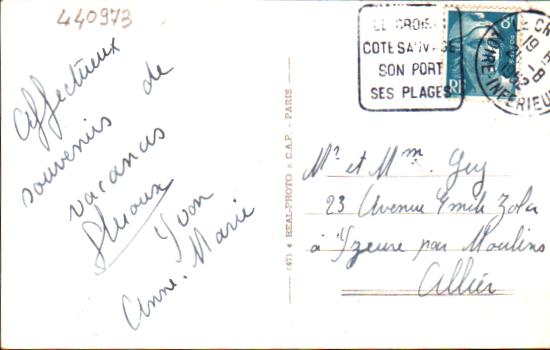 440973
LE CROISIC
COTE SAUVAGE
SON PORT
SES PLAGES
8F
RF
LOIRE-INFERIEURE
Affectueux
souvenirs de
vacances
Yvon
Anne-Marie
(47) « REAL-PHOTO » C.A.P. - PARIS
Mr et Mme Guy
23 Avenue Emile Zola
à Yzeure par Moulins
Allier